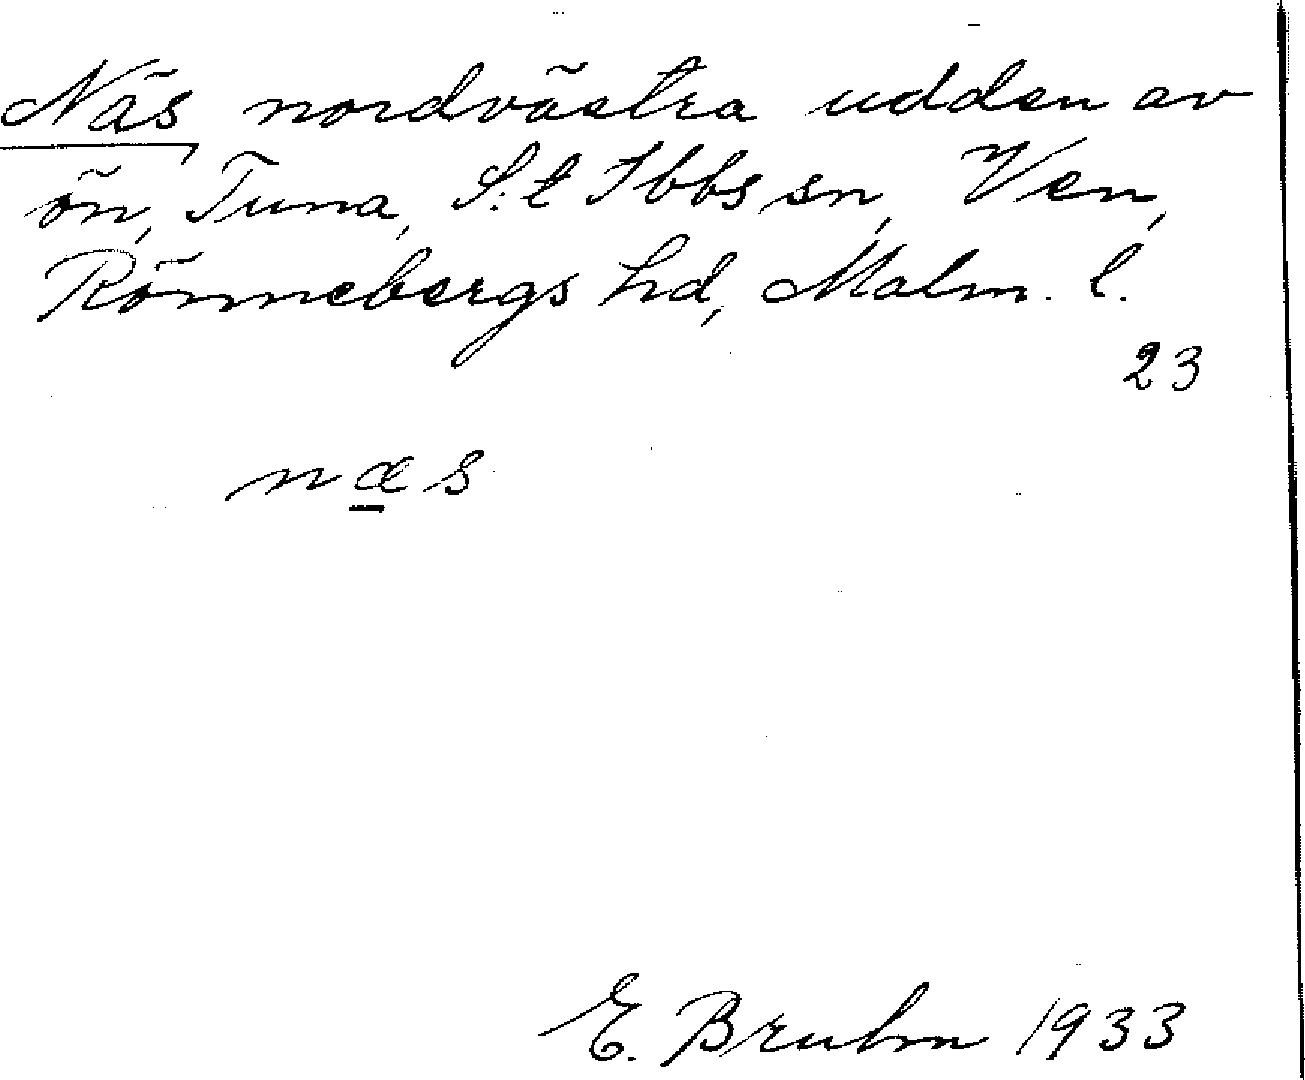 Näs, nordvästra udden av
ön, Tuna, S:t Ibbs sn, Ven,
Rönnebergs hd, Malm. l.
23
næs
E. Bruhn 1933